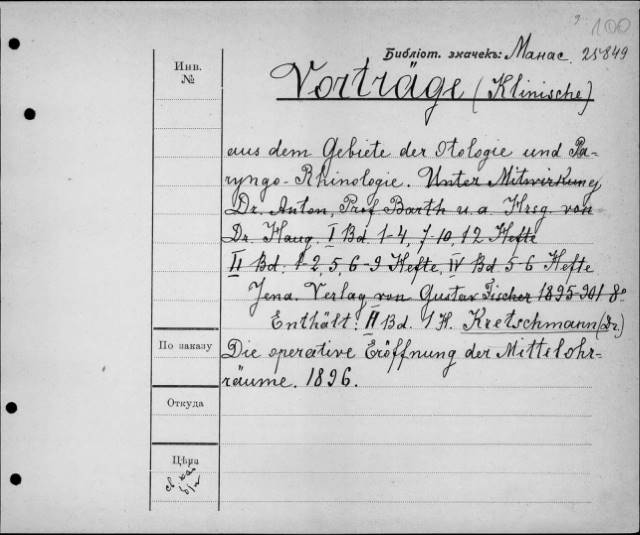 100
Библіот. значекъ: Манас. 25849
Инв.
№
Vorträge (Klinische)
aus dem Gebiete der Otologie und Pa-
ryngo-Rhinologie. Unter Mitwirkung
Dr. Anton, Prof Barth u. a. Hrsg. von
Dr. Haug. I Bd. 1-4, 7-10, 12 Hefte
II Bd. 1-2, 5, 6-9 Hefte, IV Bd. 5-6 Hefte
Jena. Verlag von Gustav Fischer 1895-901 8°
Enthält: II Bd. 1 H. Kretschmann (Dr.)
По заказу
Die operative Eröffnung der Mittelohr-
räume. 1896.
Откуда
Цѣна